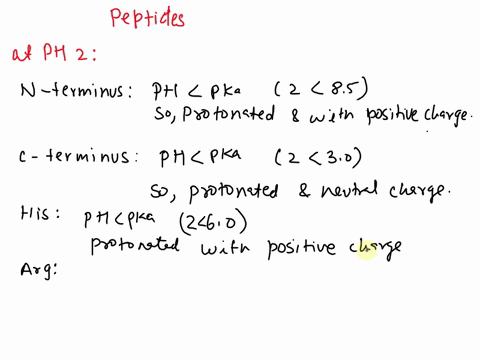 Peptides
at PH 2:
N-terminus: PH < PKa (2 < 8.5)
So, Protonated & with positive charge.
C-terminus: PH < PKA (2 < 3.0)
So, protonated & neutral charge.
His: PH < PKa (2<6.0)
Protonated with positive charge
Arg: